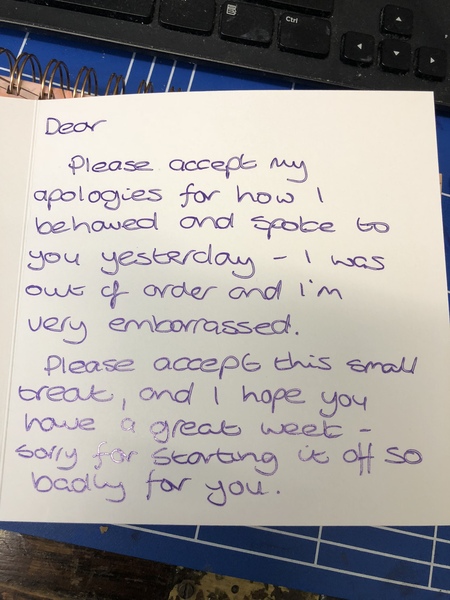 Ctrl
Dear
Please accept my
apologies for how I
behaved and spoke to
you yesterday - I was
out of order and I'm
very embarrassed.
Please accept this small
treat, and I hope you
have a great week -
sorry for starting it off so
badly for you.